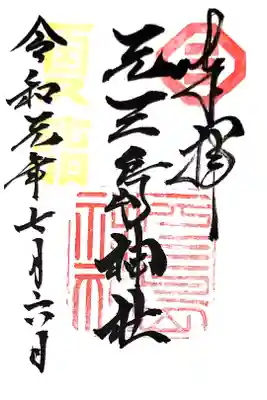 奉拝
元三島神社
令和元年七月六日
夏詣